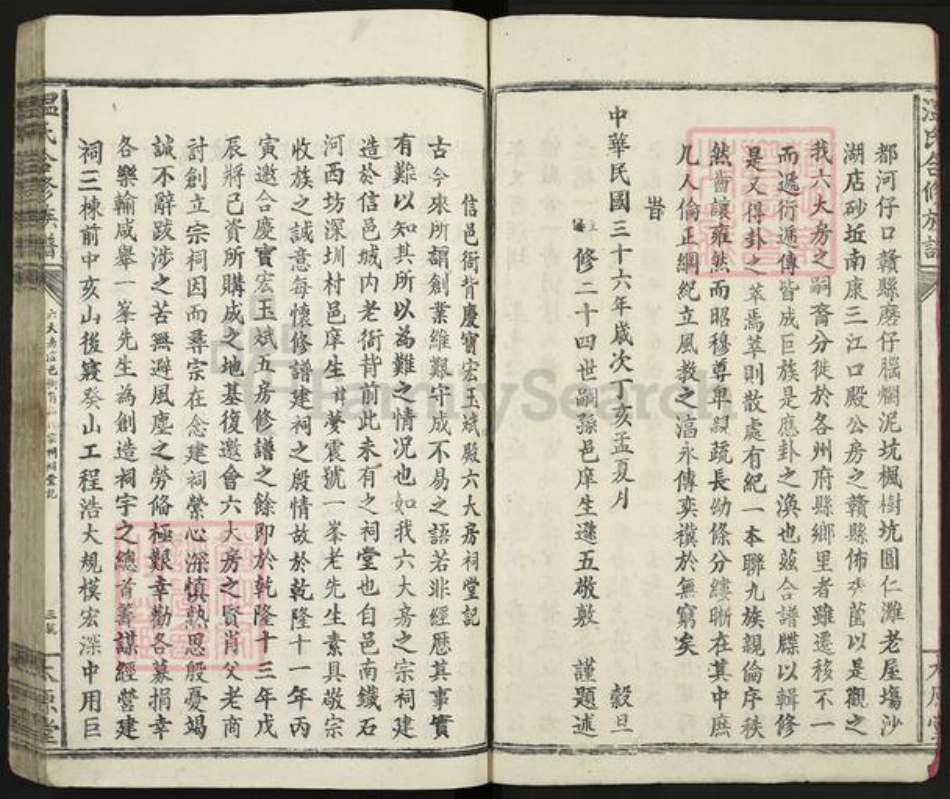 溫氏合修族譜
都河仔口贛縣磨仔腦爛泥坑楓樹坑圓仁灘老屋塲沙
湖店砂坵南康三江口殿公房之贛縣佈以是觀之
我六大房之嗣裔分徙於各州府縣鄉里者雖遷移不一
而遞衍遞傳皆成巨族是應卦之渙也茲合譜牒以輯修
是又得卦之萃焉萃則散處有紀一本聯九族親倫序秩
然齒讓雍然而昭穆尊卑親疏長幼條分縷晰在其中庶
几人倫正綱紀立風教之濡永傳奕禩於無窮矣
旹
中華民國三十六年歲次丁亥孟夏月 穀旦
主修二十四世嗣孫邑庠生遜五敬敷 謹題述
太原堂
信邑衙背慶寶宏玉斌殿六大房祠堂記
古今來所謂創業維艱守成不易之語若非經歷其事實
有難以知其所以為難之情況也如我六大房之宗祠建
造於信邑城內老衙背前此未有之祠堂也自邑南鐵石
河西坊深圳村邑庠生夢震號一峯老先生素具敬宗
收族之誠意每懷修譜建祠之殷情故於乾隆十一年丙
寅邀合慶寶宏玉斌五房修譜之餘即於乾隆十三年戊
辰將己資所購成之地基復邀會六大房之賢肖父老商
討創立宗祠因而尋宗在念建祠縈心深慎熟思殷憂竭
誠不辭跋涉之苦無避風塵之勞俻極艱幸勸各募捐幸
各樂輸咸舉一峯先生為創造祠宇之總首籌謀經營建
祠三棟前中亥山後寢癸山工程浩大規模宏深中用巨
溫氏合修族譜
三號
太原堂
FamilySearch